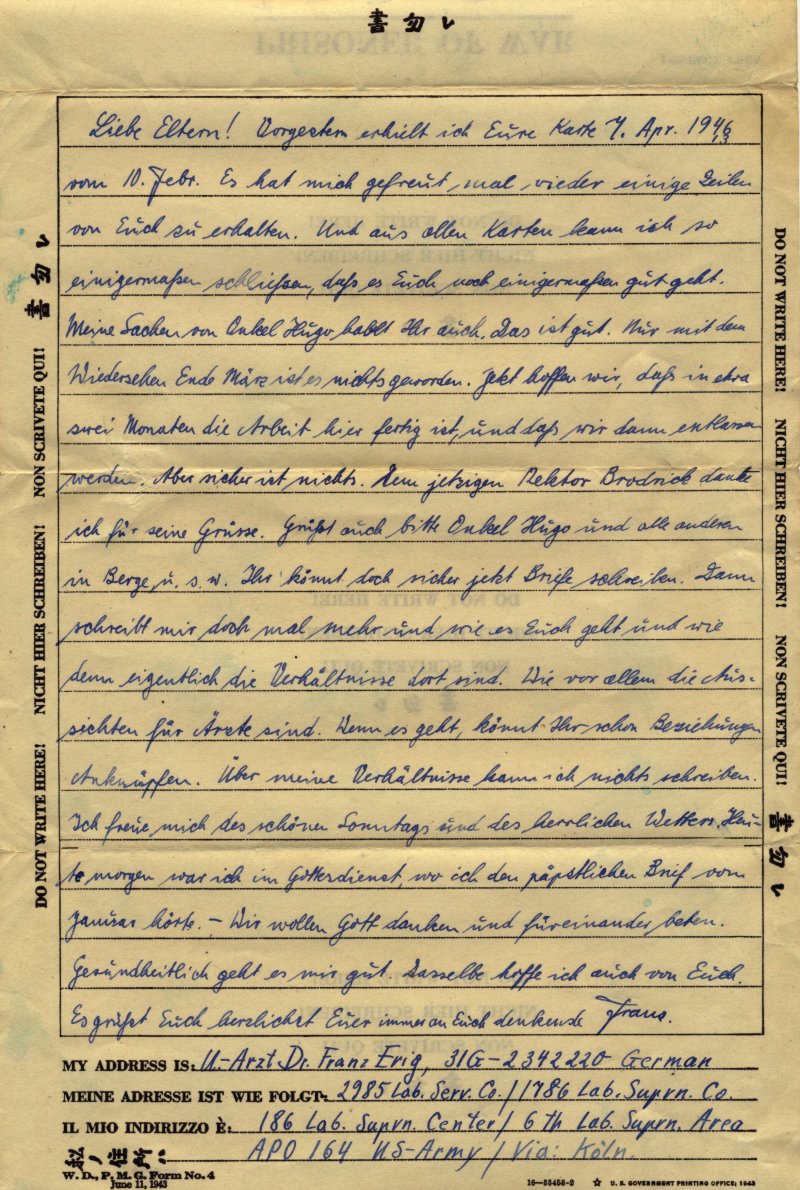 書勿レ
Liebe Eltern! Vorgestern erhielt ich Eure Karte 7. Apr. 1946
vom 10. Febr. Es hat mich gefreut, mal wieder einige Zeilen
von Euch zu erhalten. Und aus allen Karten kann ich so
einigermaßen schließen, daß es Euch noch einigermaßen gut geht.
Meine Sachen von Onkel Hugo habt Ihr auch. Das ist gut. Nur mit dem
Wiedersehen Ende März ist es nichts geworden. Jetzt hoffen wir, daß in etwa
zwei Monaten die Arbeit hier fertig ist, und daß wir dann entlassen
werden. Aber sicher ist nichts. Dem jetzigen Rektor Brodrick danke
ich für seine Grüsse. Grüßt auch bitte Onkel Hugo und alle anderen
in Berge, u. s. w. Ihr könnt doch sicher jetzt Briefe schreiben. Dann
schreibt mir doch mal mehr und wie es Euch geht und wie
denn eigentlich die Verhältnisse dort sind. Wie vor allem die Aus-
sichten für Ärzte sind. Wenn es geht, könnt Ihr schon Beziehungen
Anknüpfen. Über meine Verhältnisse kann ich nichts schreiben.
Ich freue mich des schönen Sonntags und des herrlichen Wetters. Heu-
te morgen war ich im Gottesdienst, wo ich den päpstlichen Brief vom
Januar hörte. – Wir wollen Gott danken und füreinander beten.
Gesundheitlich geht es mir gut. Dasselbe hoffe ich auch von Euch.
Es grüßt Euch herzlichst Euer immer an Euch denkende Franz.
MY ADDRESS IS: U.-Arzt Dr. Franz Evig, 31G-2342220 German
MEINE ADRESSE IST WIE FOLGT: 2985 Lab. Serv. Co. / 1786 Lab. Suprn. Co.
IL MIO INDIRIZZO È: 186 Lab. Suprn. Center / 6 th Lab. Suprn. Area
APO 164 US-Army / Via: Köln.
W. D., P. M. G. Form No. 4
June 11, 1943
16—35458-2 ☆ U. S. GOVERNMENT PRINTING OFFICE: 1943
DO NOT WRITE HERE! NICHT HIER SCHREIBEN! NON SCRIVETE QUI! 書勿レ
DO NOT WRITE HERE! NICHT HIER SCHREIBEN! NON SCRIVETE QUI! 書勿レ